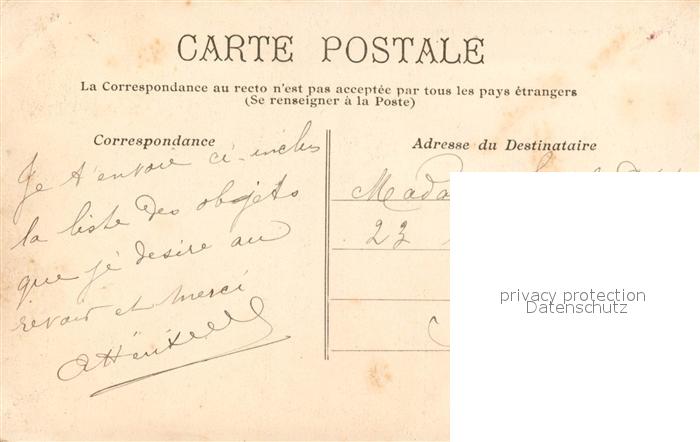 CARTE POSTALE
La Correspondance au recto n'est pas acceptée par tous les pays étrangers
(Se renseigner à la Poste)
Correspondance
Je t'envoie ci-inclus
la liste des objets
que je désire au
revoir et merci
Adresse du Destinataire
Mada
23
privacy protection
Datenschutz